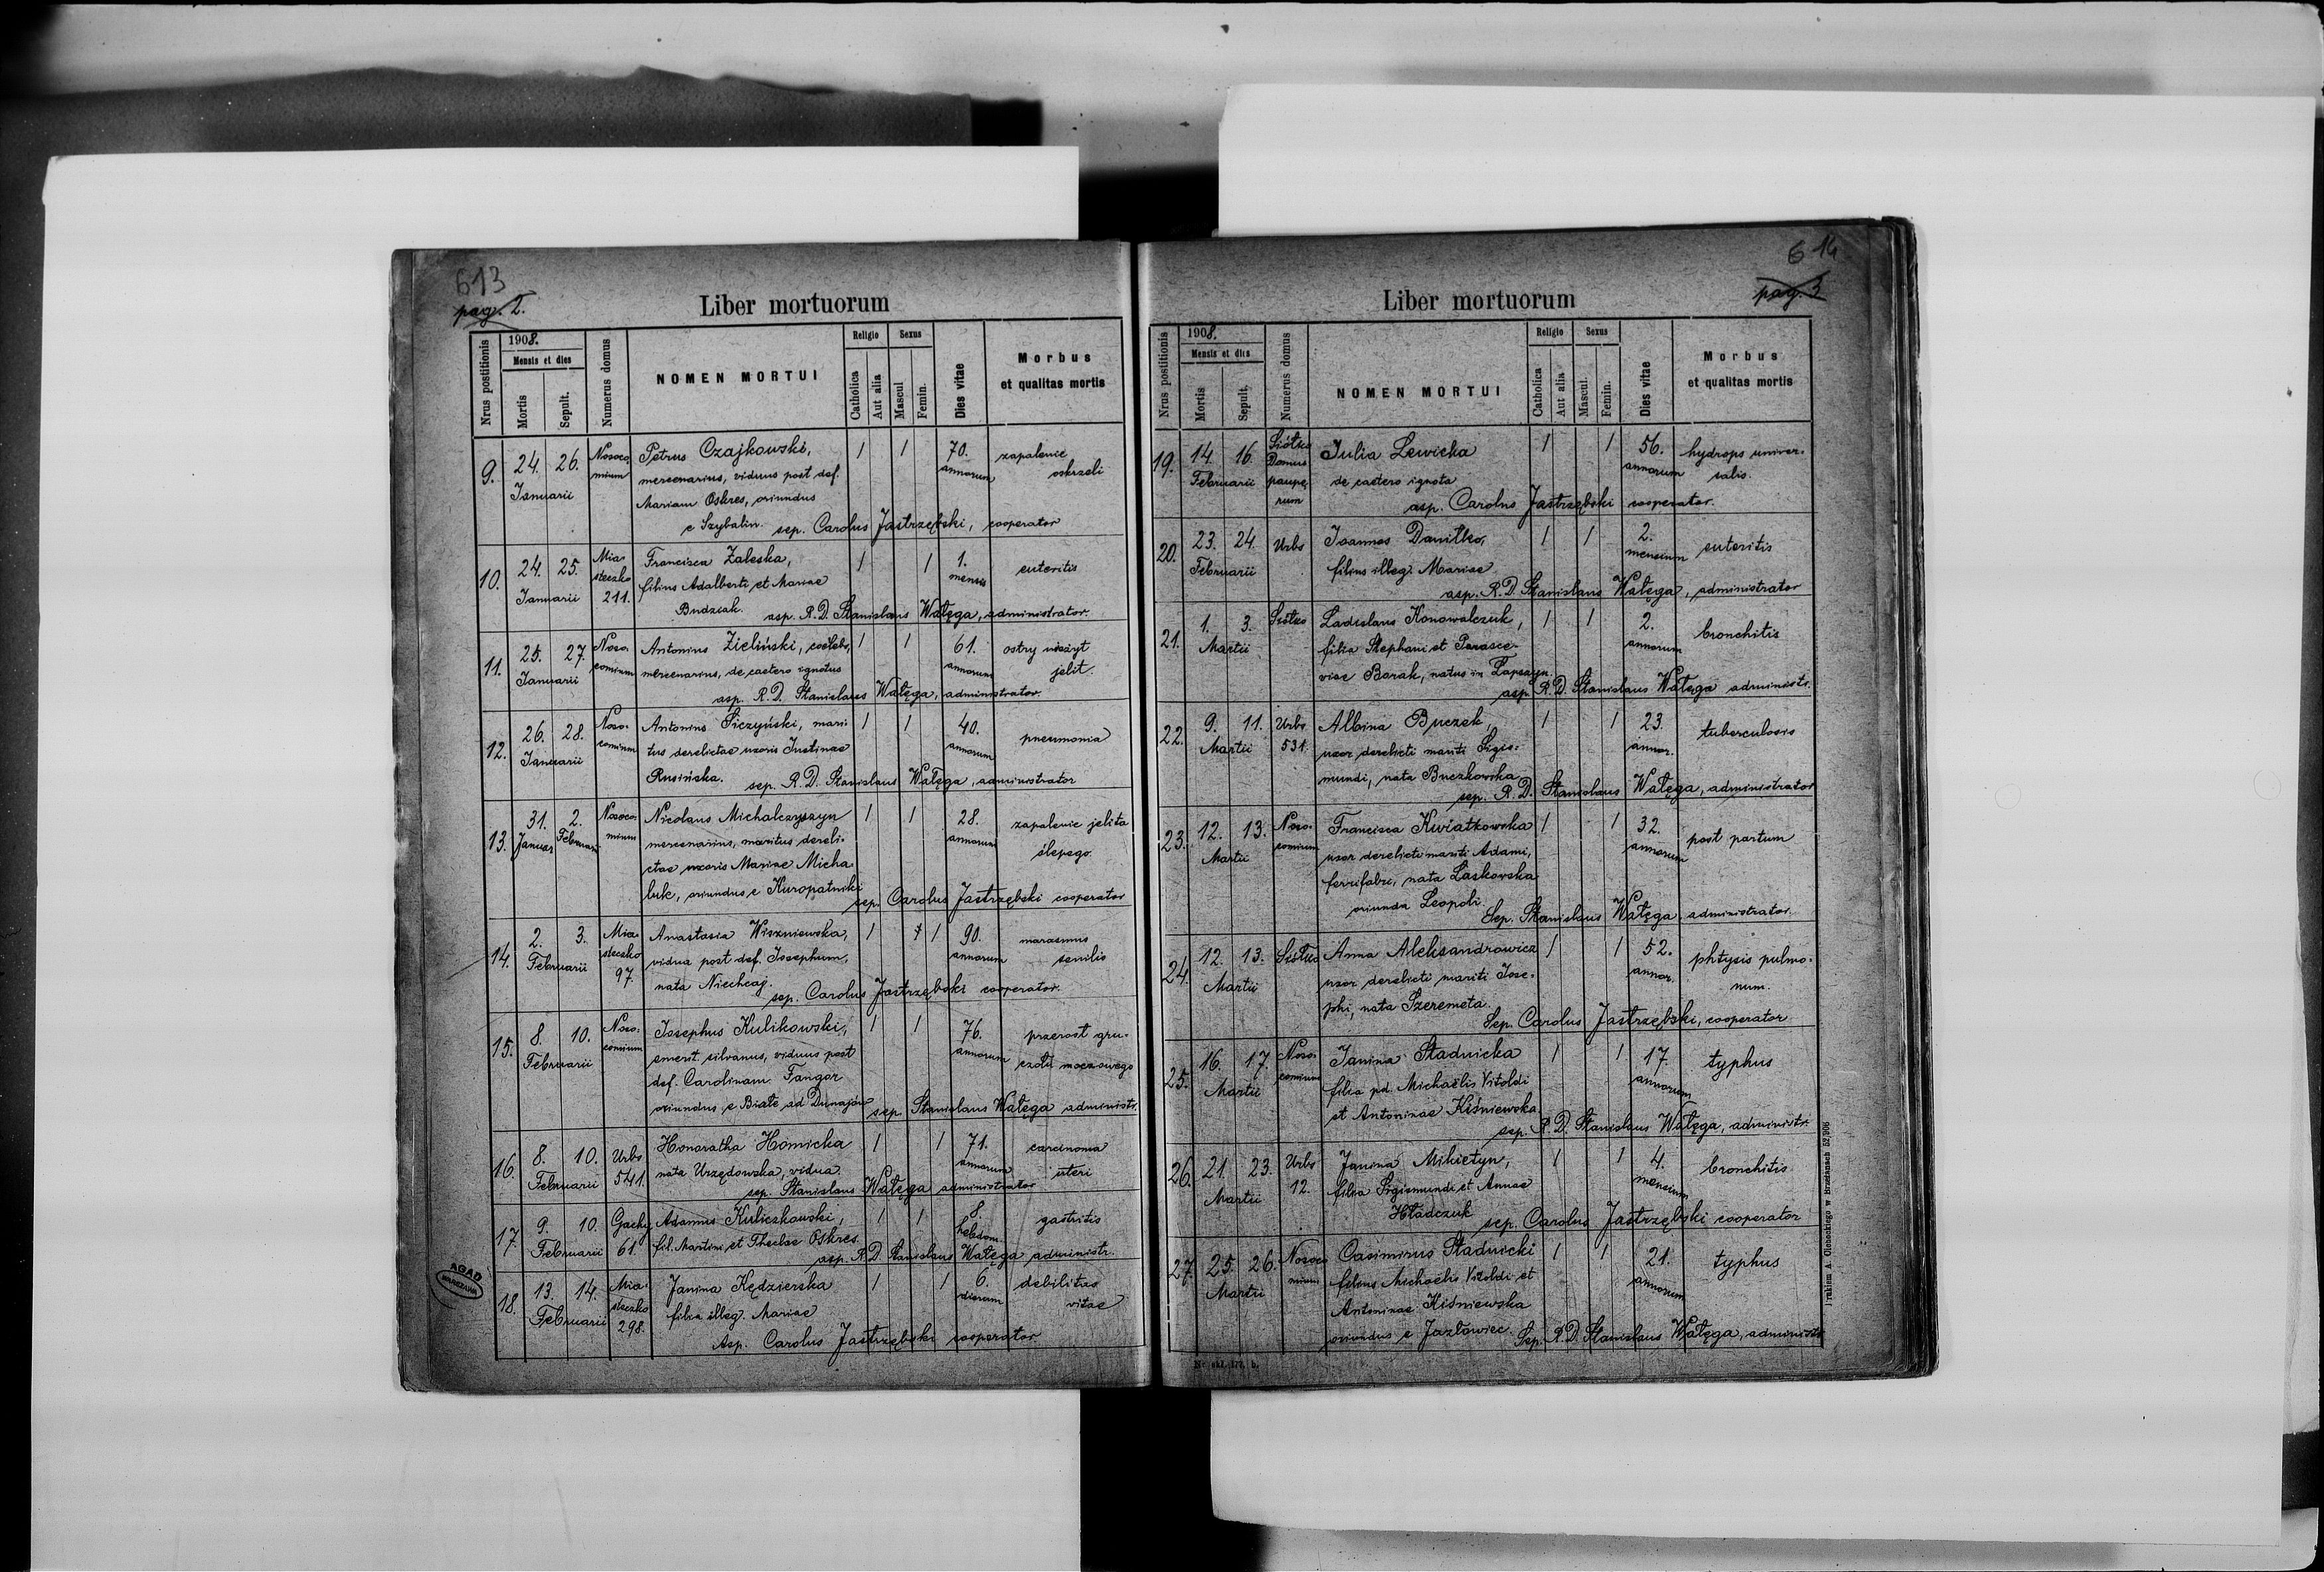 613
pag. 2.
Liber mortuorum
Nrus postitionis
1908.
Mensis et dies
Mortis
Sepult.
Numerus domus
NOMEN MORTUI
Religio
Catholica
Aut alia
Sexus
Mascul
Femin.
Dies vitae
Morbus
et qualitas mortis
9. 24. 26. Nosoco- Petrus Czajkowski, / / 70. zapalenie
Januarii minum mercenarius, viduus post def. annorum oskrzeli
Mariam Oskres, oriundus
e Szybalin. sep. Carolus Jastrzębski, cooperator
10. 24. 25. Mia- Francisca Zaleska, / / 1. enteritis
Januarii steczko filius Adalberti et Mariae mensis
211. Budziak. asp. R. D. Stanislaus Wałęga, administrator.
11. 25. 27. Noso- Antonius Zieliński, coelebs, / / 61. ostry nieżyt
Januarii comium mercenarius, de caetero ignotus annorum jelit.
asp. R. D. Stanislaus Wałęga, administrator.
12. 26. 28. Noso- Antonius Siczyński, mari- / / 40. pneumonia
Januarii comium tus derelictae uxoris Justinae annorum
Rusińska. sep. R. D. Stanislaus Wałęga, administrator
13. 31. 2. Nosoco- Nicolaus Michalczyszyn / / 28. zapalenie jelita
Januar Februarii minum mercenarius, maritus dereli- annorum ślepego.
ctae uxoris Mariae Micha-
luk, oriundus e Kuropatniki
sep. Carolus Jastrzębski cooperator
14. 2. 3. Mia- Anastasia Wiszniewska, / / 90. marasmus
Februarii steczko vidua post def. Josephum, annorum senilis
97. nata Niechcaj.
sep. Carolus Jastrzębski cooperator.
15. 8. 10. Noso- Josephus Kulikowski, / / 76. przerost gru-
Februarii comium emerit. silvanus, viduus post annorum czołu moczowego
def. Carolinam Fangor
oriundus e Białe ad Dunajów sep. Stanislaus Wałęga administr.
16. 8. 10. Urbs Honoratha Homicka / / 71. carcinoma
Februarii 541. nata Urzędowska, vidua. annorum uteri
sep. Stanislaus Wałęga administrator
17. 9. 10. Gachy Adamus Kuliczkowski, / / 8. gastritis
Februarii 61. fil. Martini et Theclae Oskres. hebdom.
asp. R. D. Stanislaus Wałęga administr.
18. 13. 14. Mia- Janina Kędzierska / / 6. debilitas
Februarii steczko filia illeg. Mariae dierum vitae
298. Asp. Carolus Jastrzębski cooperator
AGAD
WARSZAWA
614
pag. 3
Liber mortuorum
Nrus postitionis
1908.
Mensis et dies
Mortis
Sepult.
Numerus domus
NOMEN MORTUI
Religio
Catholica
Aut alia
Sexus
Mascul.
Femin.
Dies vitae
Morbus
et qualitas mortis
19. 14. 16. Siółko Julia Lewicka / / 56. hydrops univer-
Februarii Domus paupe- de caetero ignota annorum salis.
rum asp. Carolus Jastrzębski cooperator.
20. 23. 24. Urbs Joannes Daniłko, / / 2. enteritis
Februarii filius illeg. Mariae mensium
asp. R. D. Stanislaus Wałęga, administrator
21. 1. 3. Siółko Ladislaus Konowalczuk, / / 2. bronchitis
Martii filia Stephani et Parasce- annorum
viae Borak, natus in Łapszyn.
asp. R. D. Stanislaus Wałęga administr.
22. 9. 11. Urbs Albina Buczek, / / 23. tuberculosis
Martii 531. uxor derelicti mariti Sigis- annor.
mundi, nata Buczkowska
sep. R. D. Stanislaus Wałęga, administrator
23. 12. 13. Noso- Francisca Kwiatkowska / / 32. post partum
Martii comium uxor derelicti mariti Adami, annorum
ferrifabri, nata Laskowska
oriunda Leopoli.
Sep. Stanislaus Wałęga, administrator.
24. 12. 13. Siółko Anna Aleksandrowicz / / 52. phtysis pulmo-
Martii uxor derelicti mariti Jose- annor. num.
phi, nata Szeremeta.
Sep. Carolus Jastrzębski, cooperator.
25. 16. 17. Noso- Janina Stadnicka / / 17. typhus
Martii comium filia pd. Michaëlis Vitoldi annorum
et Antoninae Kiśniewska
sep. R. D. Stanislaus Wałęga, administr.
26. 21. 23. Urbs Janina Mikietyn, / / 4. bronchitis
Martii 12. filia Sigismundi et Annae mensium
Hładczuk sep. Carolus Jastrzębski cooperator
27. 25. 26. Nosoco- Casimirus Stadnicki / / 21. typhus
Martii minum filius Michaëlis Vitoldi et annorum
Antoninae Kiśniewska
oriundus e Jazłowiec. Sep. R. D. Stanislaus Wałęga, administr.
Drukiem A. Cichockiego w Brzeżanach 52/906